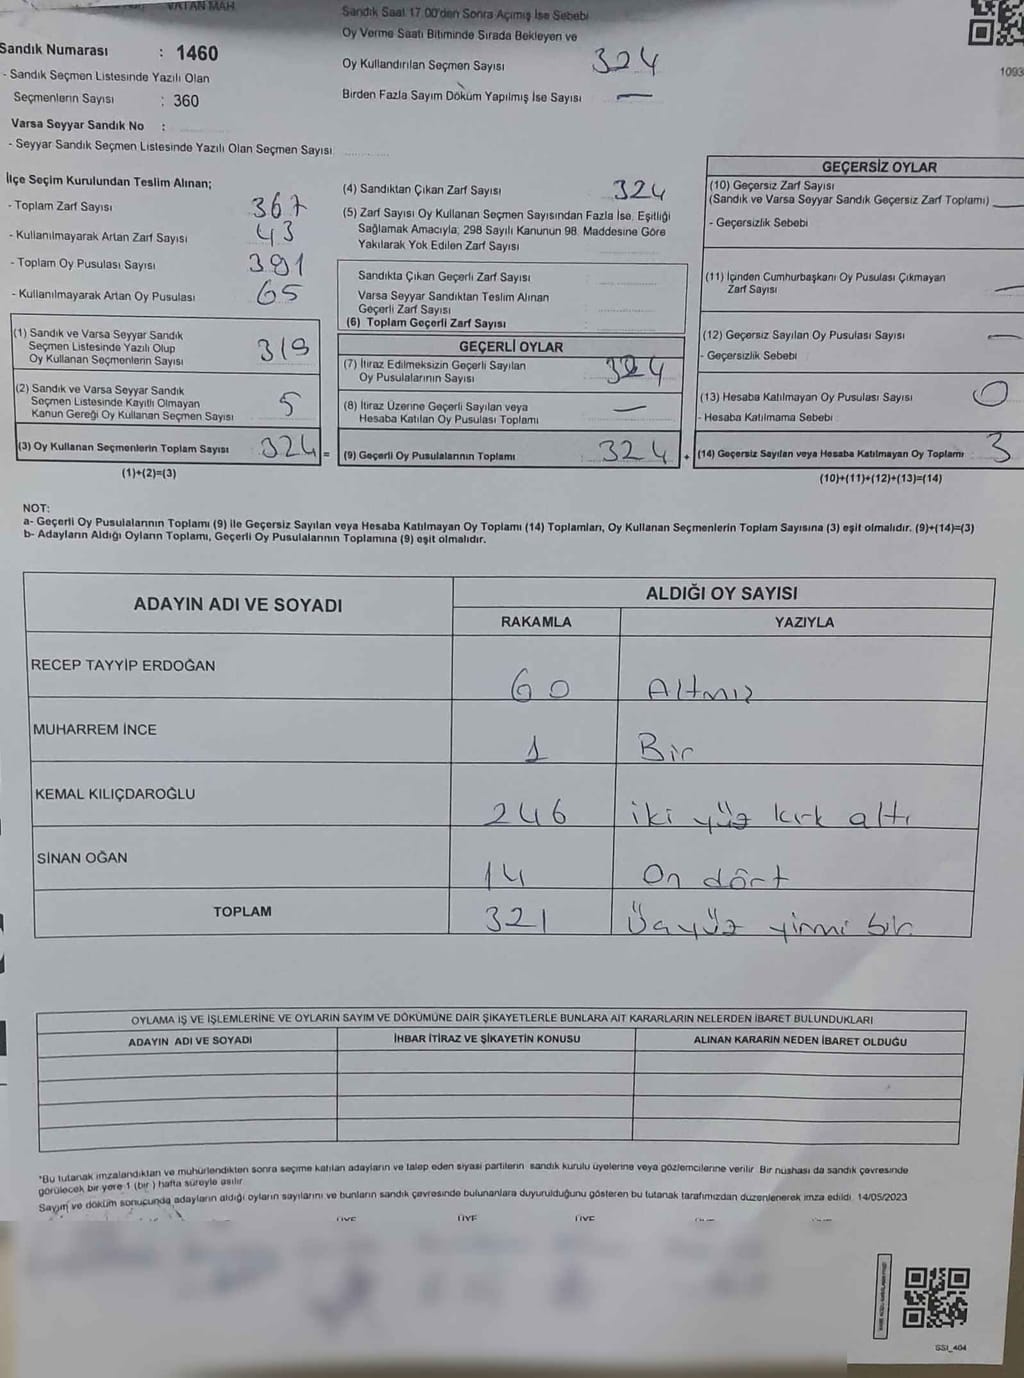 VATAN MAH
Sandık Numarası : 1460
- Sandık Seçmen Listesinde Yazılı Olan
Seçmenlerin Sayısı : 360
Varsa Seyyar Sandık No :
- Seyyar Sandık Seçmen Listesinde Yazılı Olan Seçmen Sayısı
Sandık Saat 17.00'den Sonra Açımış İse Sebebi
Oy Verme Saati Bitiminde Sırada Bekleyen ve
Oy Kullandırılan Seçmen Sayısı 324
Birden Fazla Sayım Döküm Yapılmış İse Sayısı —
1093
İlçe Seçim Kurulundan Teslim Alınan;
- Toplam Zarf Sayısı 367
- Kullanılmayarak Artan Zarf Sayısı 43
- Toplam Oy Pusulası Sayısı 391
- Kullanılmayarak Artan Oy Pusulası 65
(1) Sandık ve Varsa Seyyar Sandık
Seçmen Listesinde Yazılı Olup
Oy Kullanan Seçmenlerin Sayısı 319
(2) Sandık ve Varsa Seyyar Sandık
Seçmen Listesinde Kayıtlı Olmayan
Kanun Gereği Oy Kullanan Seçmen Sayısı 5
(3) Oy Kullanan Seçmenlerin Toplam Sayısı 324 =
(1)+(2)=(3)
(4) Sandıktan Çıkan Zarf Sayısı 324
(5) Zarf Sayısı Oy Kullanan Seçmen Sayısından Fazla İse, Eşitliği
Sağlamak Amacıyla; 298 Sayılı Kanunun 98. Maddesine Göre
Yakılarak Yok Edilen Zarf Sayısı
Sandıkta Çıkan Geçerli Zarf Sayısı
Varsa Seyyar Sandıktan Teslim Alınan
Geçerli Zarf Sayısı
(6) Toplam Geçerli Zarf Sayısı
GEÇERLİ OYLAR
(7) İtiraz Edilmeksizin Geçerli Sayılan
Oy Pusulalarının Sayısı 324
(8) İtiraz Üzerine Geçerli Sayılan veya
Hesaba Katılan Oy Pusulası Toplamı —
(9) Geçerli Oy Pusulalarının Toplamı 324 +
GEÇERSİZ OYLAR
(10) Geçersiz Zarf Sayısı
(Sandık ve Varsa Seyyar Sandık Geçersiz Zarf Toplamı) —
- Geçersizlik Sebebi
(11) İçinden Cumhurbaşkanı Oy Pusulası Çıkmayan
Zarf Sayısı —
(12) Geçersiz Sayılan Oy Pusulası Sayısı —
- Geçersizlik Sebebi
(13) Hesaba Katılmayan Oy Pusulası Sayısı 0
- Hesaba Katılmama Sebebi
(14) Geçersiz Sayılan veya Hesaba Katılmayan Oy Toplamı 3
(10)+(11)+(12)+(13)=(14)
NOT:
a- Geçerli Oy Pusulalarının Toplamı (9) ile Geçersiz Sayılan veya Hesaba Katılmayan Oy Toplamı (14) Toplamları, Oy Kullanan Seçmenlerin Toplam Sayısına (3) eşit olmalıdır. (9)+(14)=(3)
b- Adayların Aldığı Oyların Toplamı, Geçerli Oy Pusulalarının Toplamına (9) eşit olmalıdır.
ADAYIN ADI VE SOYADI
ALDIĞI OY SAYISI
RAKAMLA YAZIYLA
RECEP TAYYİP ERDOĞAN 60 Altmış
MUHARREM İNCE 1 Bir
KEMAL KILIÇDAROĞLU 246 iki yüz kırk altı
SİNAN OĞAN 14 On dört
TOPLAM 321 Üçyüz yirmi bir
OYLAMA İŞ VE İŞLEMLERİNE VE OYLARIN SAYIM VE DÖKÜMÜNE DAİR ŞİKAYETLERLE BUNLARA AİT KARARLARIN NELERDEN İBARET BULUNDUKLARI
ADAYIN ADI VE SOYADI İHBAR İTİRAZ VE ŞİKAYETİN KONUSU ALINAN KARARIN NEDEN İBARET OLDUĞU
*Bu tutanak imzalandıktan ve mühürlendikten sonra seçime katılan adayların ve talep eden siyasi partilerin sandık kurulu üyelerine veya gözlemcilerine verilir. Bir nüshası da sandık çevresinde
görülecek bir yere 1 (bir ) hafta süreyle asılır.
Sayım ve döküm sonucunda adayların aldığı oyların sayılarını ve bunların sandık çevresinde bulunanlara duyurulduğunu gösteren bu tutanak tarafımızdan düzenlenerek imza edildi. 14/05/2023
ÜYE ÜYE ÜYE
SSI_404